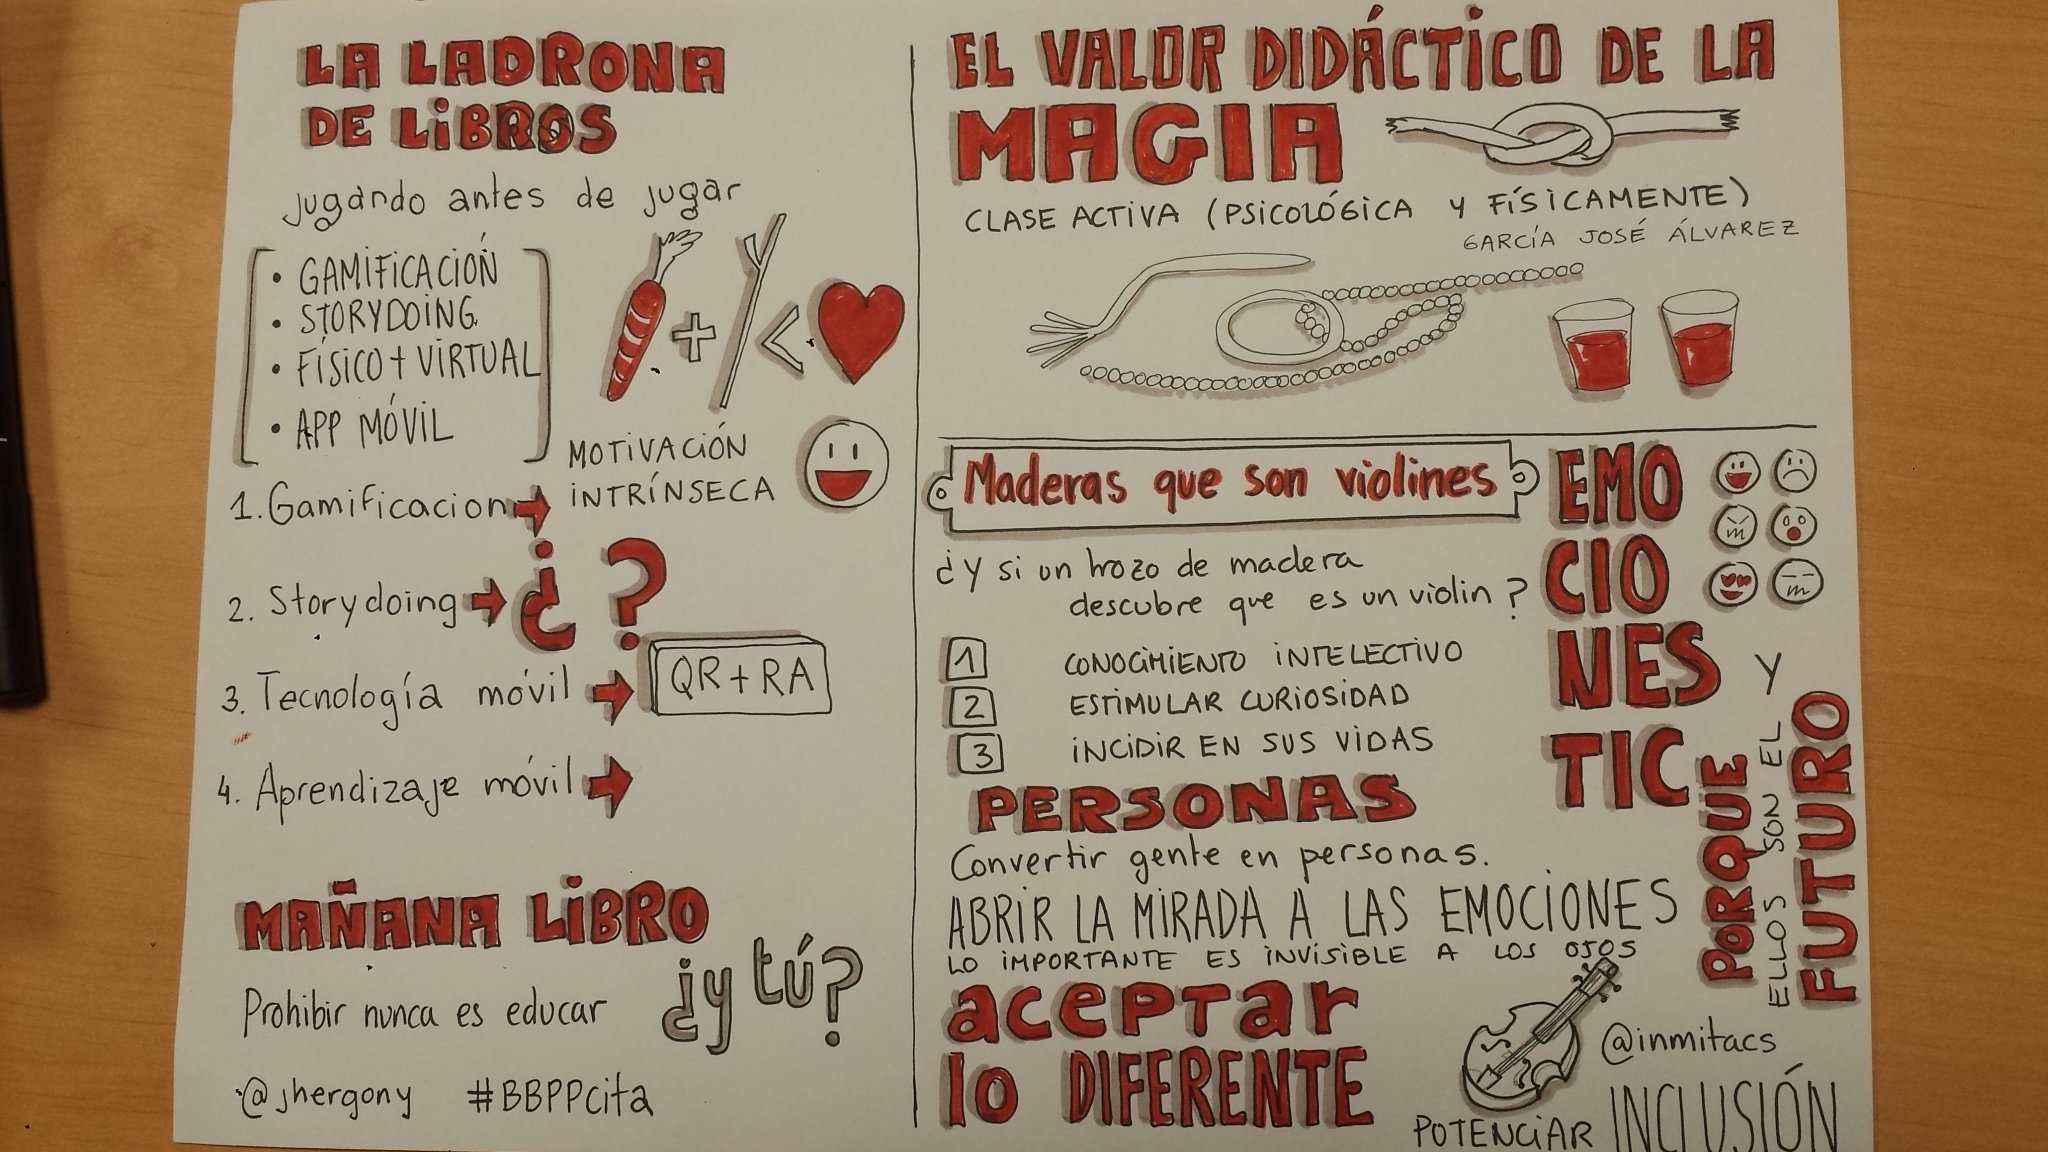 LA LADRONA
DE LiBROS
jugando antes de jugar
• GAMiFiCACIÓN
• STORYDOiNG
• FÍSICO + ViRTUAL
• APP MÓViL
MOTiVACiÓN
iNTRÍNSECA
1. Gamificacion
2. Storydoing ¿ ?
3. Tecnología móvil QR + RA
4. Aprendizaje móvil
MAÑANA LiBRO
Prohibir nunca es educar
¿y tú?
@jhergony #BBPPcita
EL VALOR DIDÁCTiCO DE LA
MAGIA
CLASE ACTiVA (PSiCOLÓGiCA Y FÍSiCAMENTE)
GARCÍA JOSÉ ÁLVAREZ
Maderas que son violines
¿Y si un trozo de madera
descubre que es un violin?
1 CONOCiMiENTO iNTELECTiVO
2 ESTiMULAR CURiOSiDAD
3 iNCiDiR EN SUS ViDAS
PERSONAS
Convertir gente en personas.
ABRiR LA MiRADA A LAS EMOCiONES
LO iMPORTANTE ES iNViSiBLE A LOS OJOS
aceptar
lo DIFERENTE
EMO
CIO
NES
Y
TIC
PORQUE
ELLOS SON EL
FUTURO
@inmitacs
POTENCiAR INCLUSIÓN